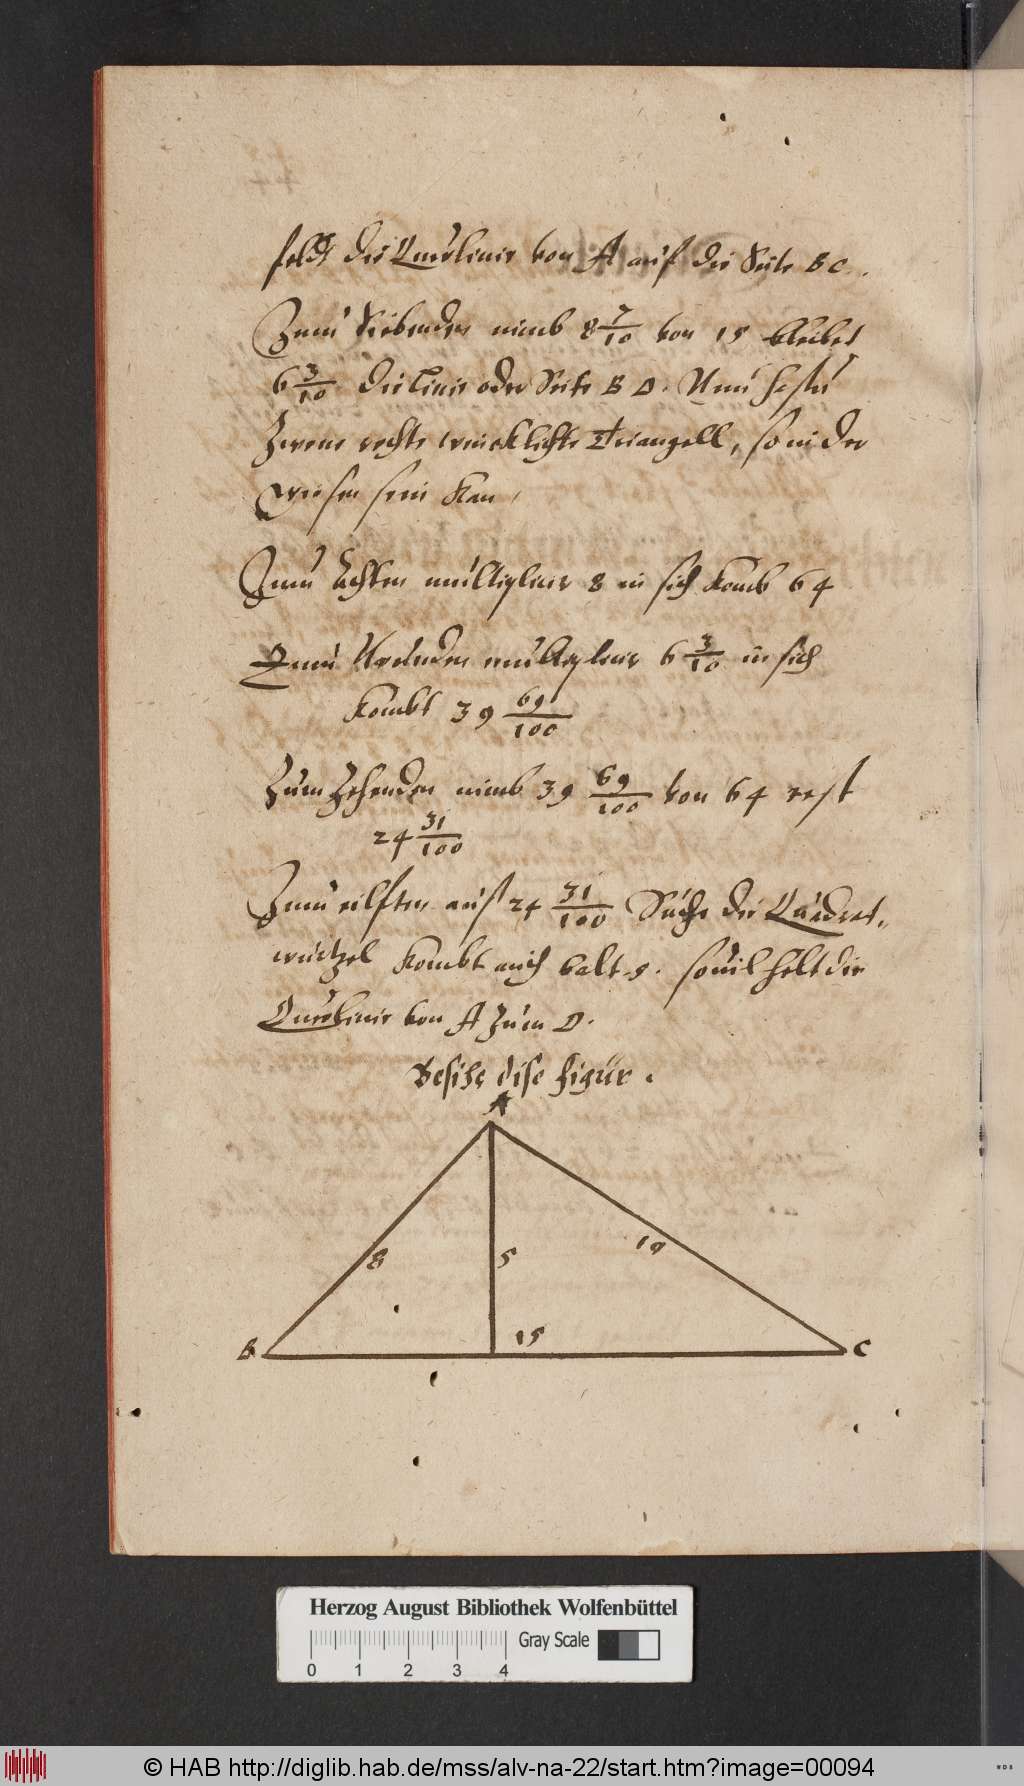 feldt die Querlinie von A auf die Seite B C.
Zum Siebenden nimb 8 7/10 von 15 bleibet
6 3/10 die Linie oder Seite B D. Nun hastu
Zwene rechte winckelichte Triangell, so in der
sein kan,
Zum Achten multiplicir 8 in sich kombt 64
Zum Neunden multiplicir 6 3/10 in sich
kombt 39 69/100
Zum Zehenden nimb 39 69/100 von 64 rest
24 31/100
Zum eilften auß 24 31/100 Suche die Quadrat„
wurtzel kombt auch balt 5. souil helt die
Querlinie von A Zum D.
Besihe dise figur.
A
8
5
10
15
B
C
Herzog August Bibliothek Wolfenbüttel
Gray Scale
0 1 2 3 4
© HAB http://diglib.hab.de/mss/alv-na-22/start.htm?image=00094